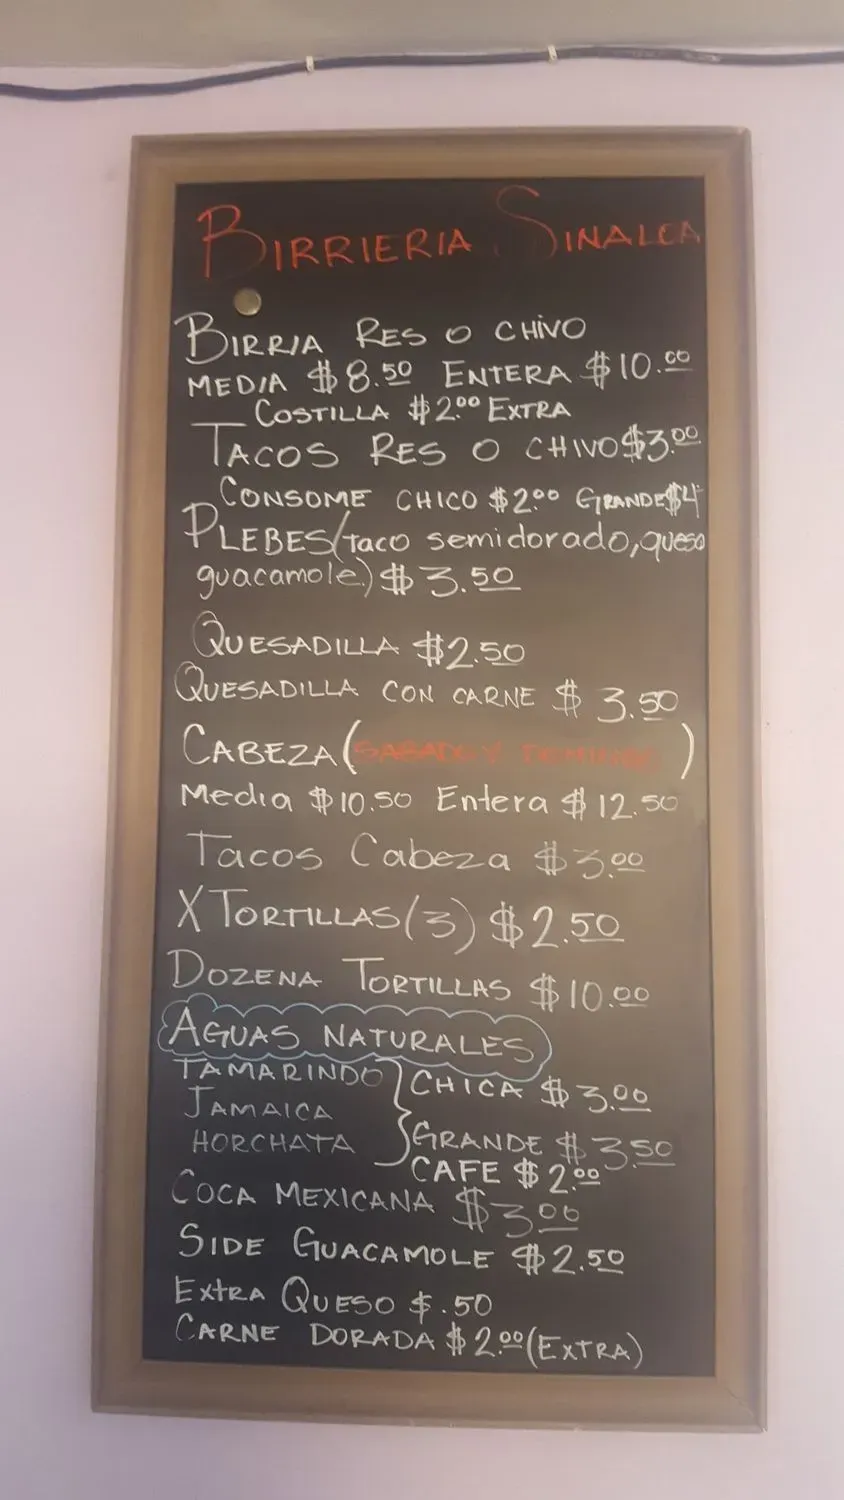 BIRRIERIA SINALOA
BIRRIA RES O CHIVO
MEDIA $8.50 ENTERA $10.00
COSTILLA $2.00 EXTRA
TACOS RES O CHIVO $3.00
CONSOME CHICO $2.00 GRANDE $4
PLEBES (taco semidorado, queso
guacamole) $3.50
QUESADILLA $2.50
QUESADILLA CON CARNE $3.50
CABEZA (SABADO Y DOMINGO)
Media $10.50 Entera $12.50
Tacos Cabeza $3.00
X TORTILLAS (3) $2.50
DOZENA TORTILLAS $10.00
AGUAS NATURALES
TAMARINDO CHICA $3.00
JAMAICA
HORCHATA GRANDE $3.50
CAFE $2.00
COCA MEXICANA $3.00
SIDE GUACAMOLE $2.50
EXTRA QUESO $.50
CARNE DORADA $2.00 (EXTRA)